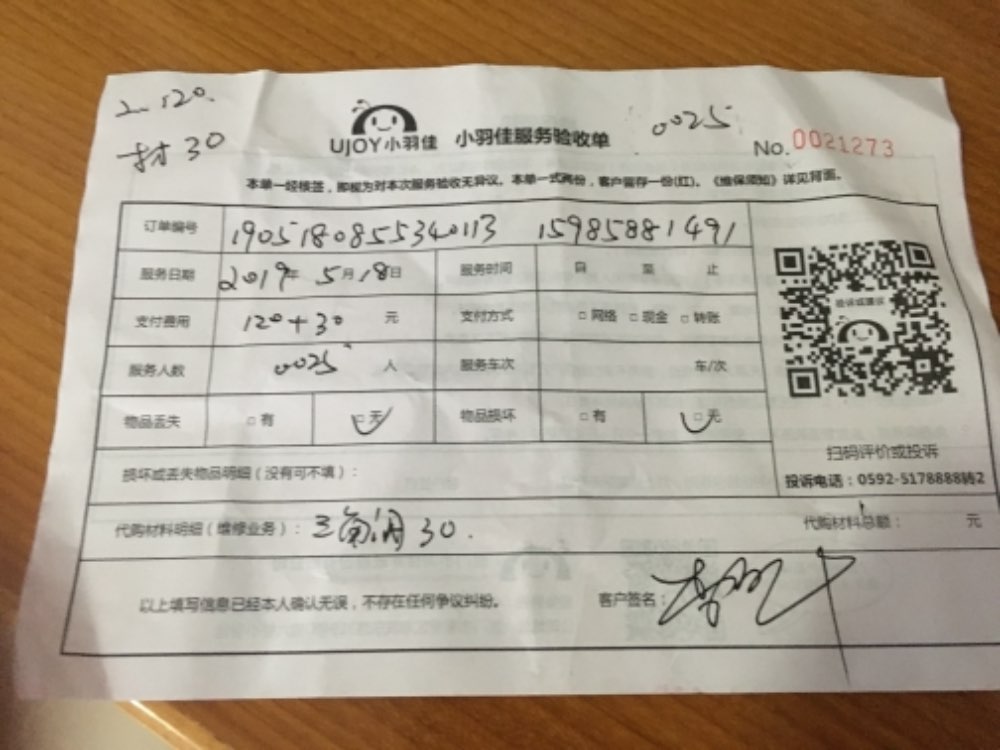 工120.
材30
UJOY小羽佳 小羽佳服务验收单
0025
No. 0021273
本单一经核签，即视为对本次服务验收无异议。本单一式两份，客户留存一份(红)。《维保须知》详见背面。
订单编号 1905180855340113 15985881491
服务日期 2019年 5月18日 服务时间 自 至 止
支付费用 120+30 元 支付方式 □网络 □现金 □转账
服务人数 0025 人 服务车次 车/次
物品丢失 □有 □无 物品损坏 □有 □无
投诉或建议
扫码评价或投诉
投诉电话：0592-5178888转2
损坏或丢失物品明细（没有可不填）：
代购材料明细（维修业务）：三角阀30. 代购材料总额： 元
以上填写信息已经本人确认无误，不存在任何争议纠纷。 客户签名：